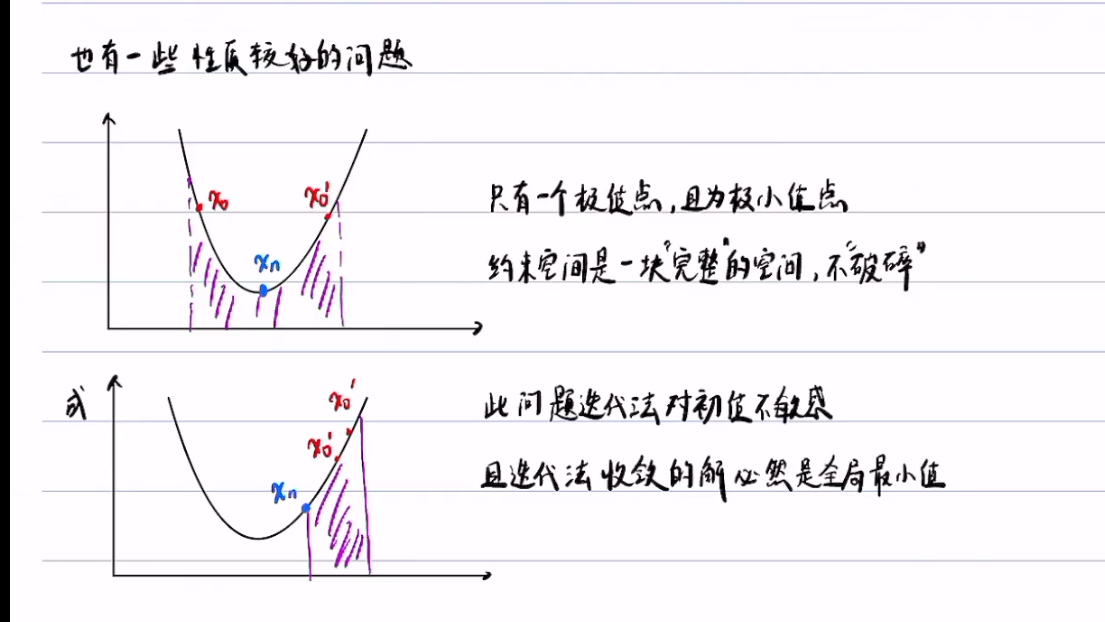 也有一些性质较好的问题
x₀ x₀'
xₙ
只有一个极值点,且为极小值点
约束空间是一块"完整"的空间,不"破碎"
或
x₀'
x₀'
xₙ
此问题迭代法对初值不敏感
且迭代法收敛的解必然是全局最小值